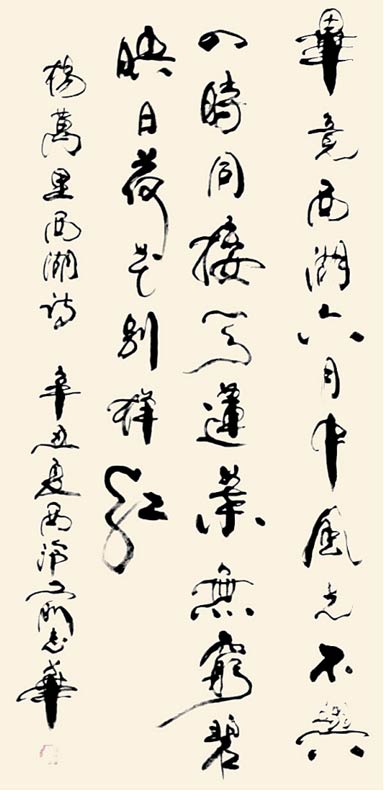 畢竟西湖六月中風光不與
四時同接天蓮葉無窮碧
映日荷花別樣紅
楊萬里西湖詩 辛丑夏西泠 志華